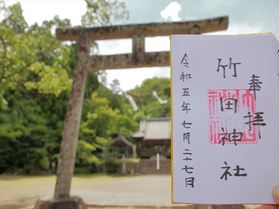 奉拝
竹田神社
令和五年七月二十七日